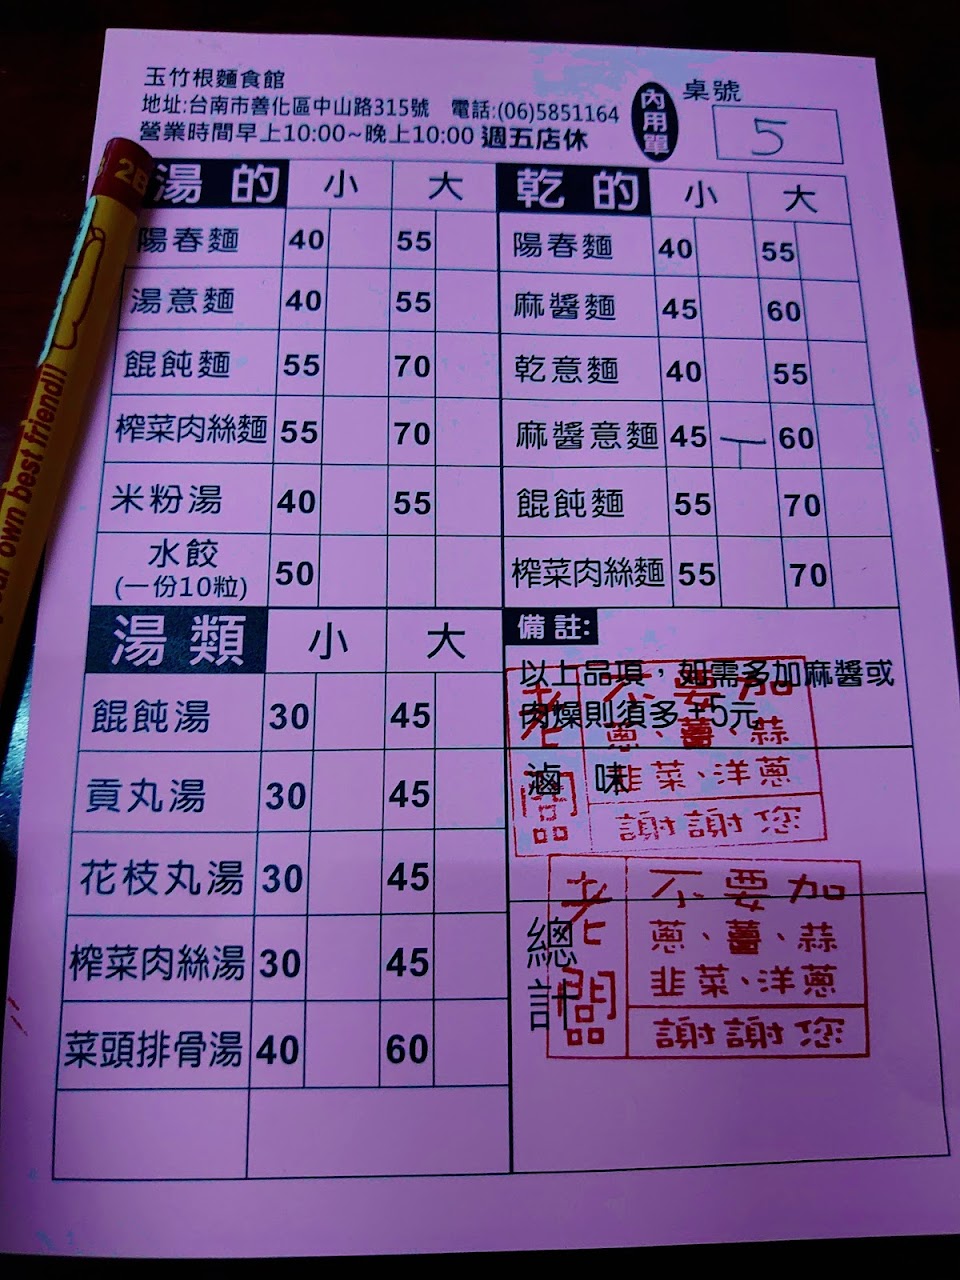 玉竹根麵食館
地址:台南市善化區中山路315號 電話:(06)5851164
營業時間早上10:00~晚上10:00 週五店休
內用單
桌號
5
2B
your own best friend!!
湯的 小 大
陽春麵 40 55
湯意麵 40 55
餛飩麵 55 70
榨菜肉絲麵 55 70
米粉湯 40 55
水餃
(一份10粒) 50
乾的 小 大
陽春麵 40 55
麻醬麵 45 60
乾意麵 40 55
麻醬意麵 45 60
餛飩麵 55 70
榨菜肉絲麵 55 70
湯類 小 大
餛飩湯 30 45
貢丸湯 30 45
花枝丸湯 30 45
榨菜肉絲湯 30 45
菜頭排骨湯 40 60
備註:
以上品項，如需多加麻醬或
肉燥則須多+5元
滷味
總計
老闆
不要加
蔥、薑、蒜
韭菜、洋蔥
謝謝您
老闆
不要加
蔥、薑、蒜
韭菜、洋蔥
謝謝您